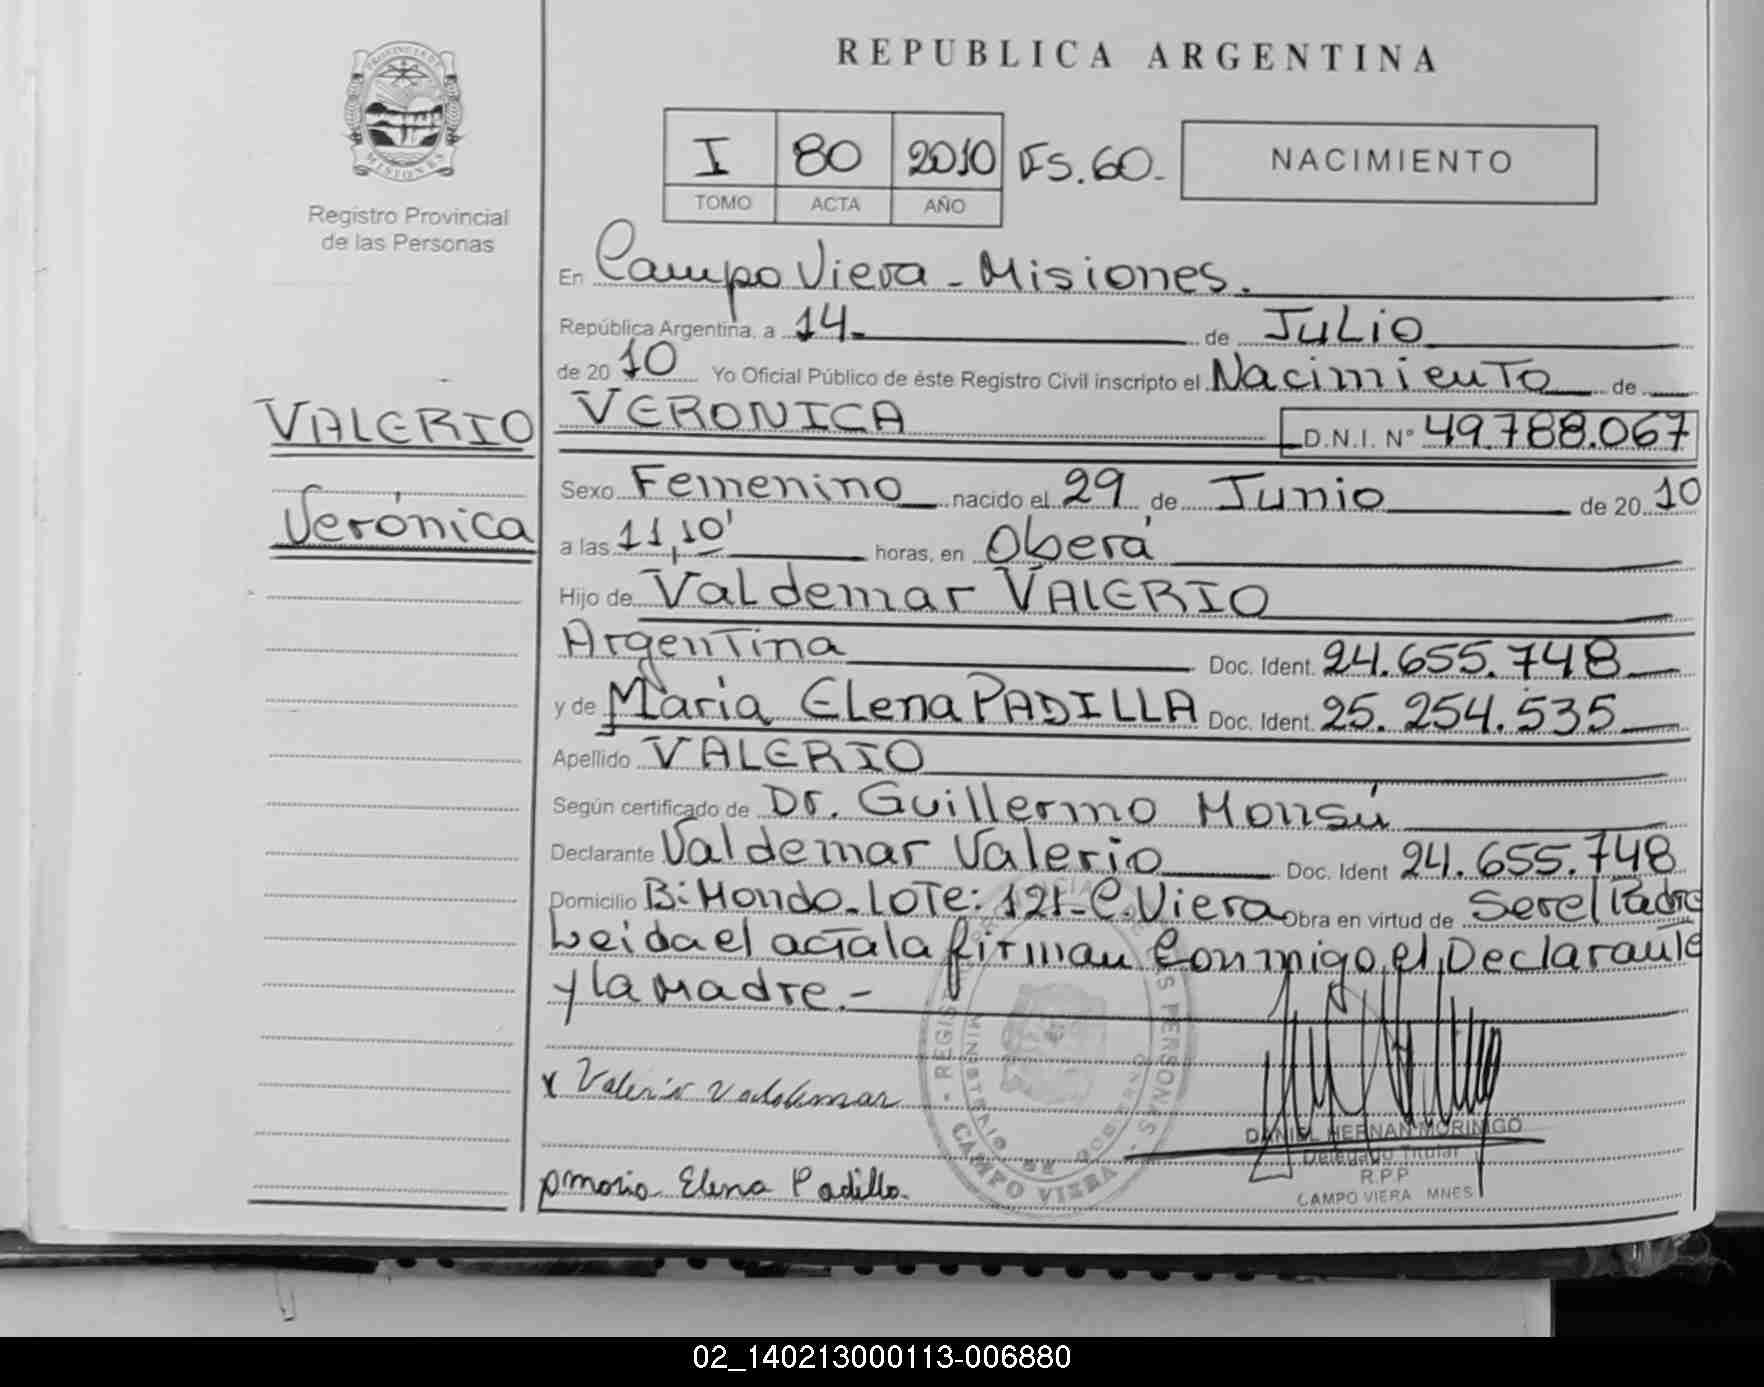 PROVINCIA DE
MISIONES
Registro Provincial
de las Personas
VALERIO
Verónica
REPUBLICA ARGENTINA
I 80 2010 Fs. 60.
TOMO ACTA AÑO
NACIMIENTO
En Campo Viera - Misiones.
República Argentina, a 14 de Julio
de 20 10 Yo Oficial Público de éste Registro Civil inscripto el Nacimiento de
VERONICA D.N.I. N° 49.788.067
Sexo Femenino nacido el 29 de Junio de 20 10
a las 11,10' horas, en Oberá
Hijo de Valdemar VALERIO
Argentina Doc. Ident. 24.655.748
y de Maria Elena PADILLA Doc. Ident. 25.254.535
Apellido VALERIO
Según certificado de Dr. Guillermo Monsú
Declarante Valdemar Valerio Doc. Ident 24.655.748
Domicilio B: Mondo - Lote: 121 - C. Viera Obra en virtud de Ser el Padre
Leida el acta la firman Conmigo el Declarante
y la Madre.-
x Valerio Valdemar
Elena Padilla
REGISTRO PROVINCIAL DE LAS PERSONAS
MINISTERIO DE GOBIERNO
CAMPO VIERA
DANIEL HERNAN MORINIGO
Delegado Titular
R.P.P
CAMPO VIERA MNES
02_140213000113-006880